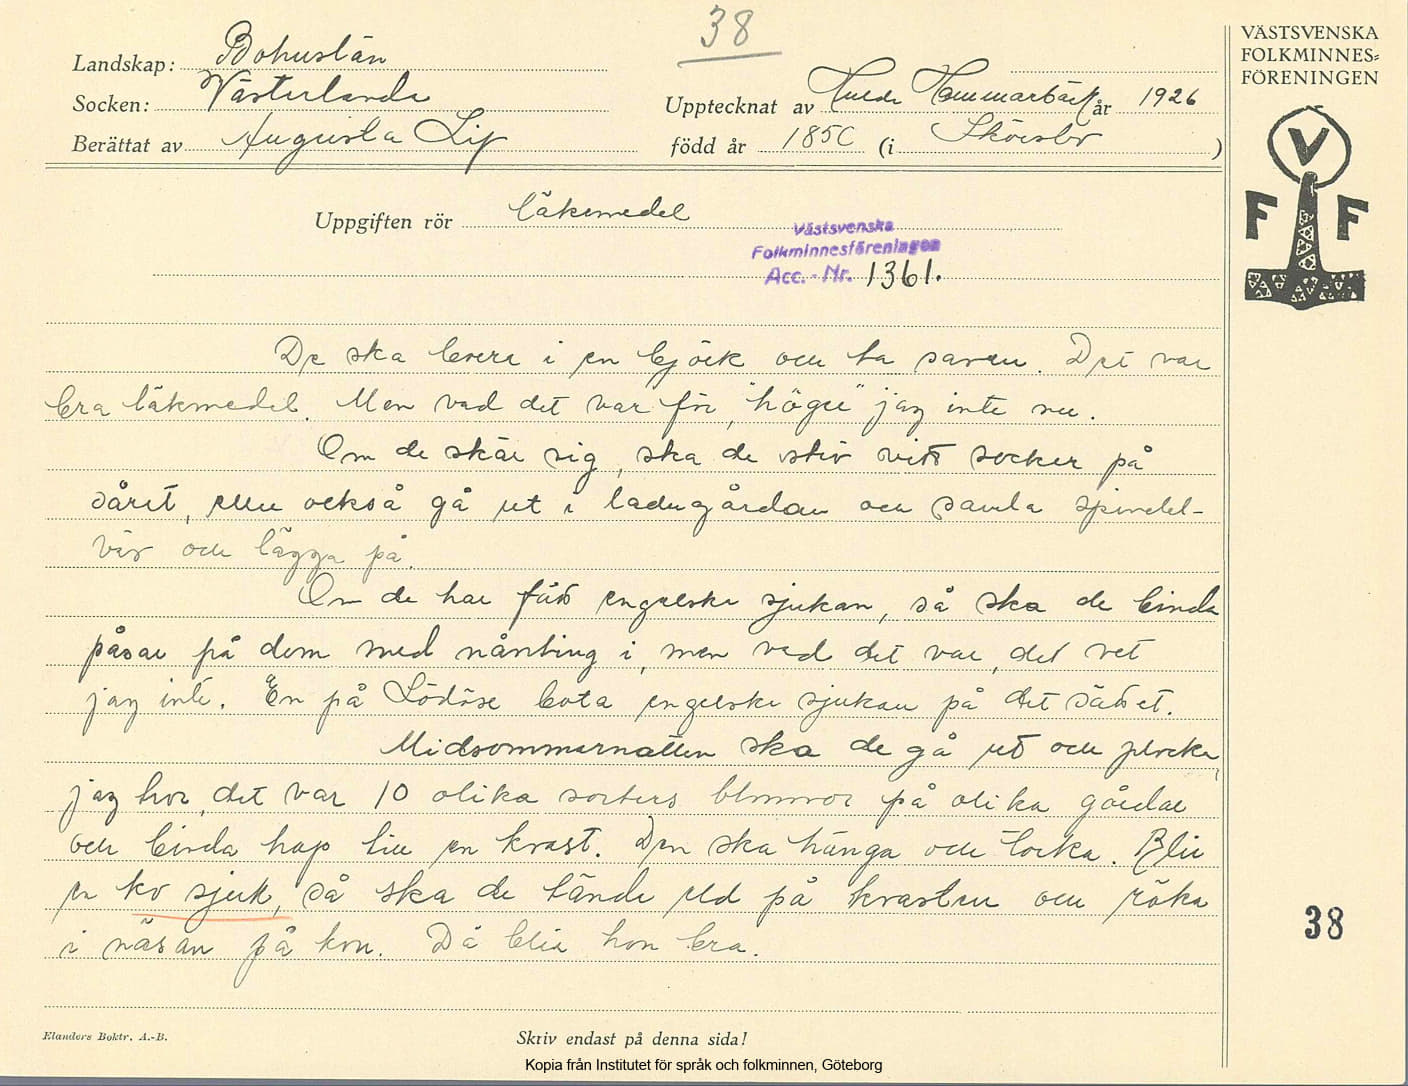 38
VÄSTSVENSKA
FOLKMINNES=
FÖRENINGEN
Landskap: Bohuslän
Socken: Västerlanda
Upptecknat av Hammarbäck år 1926
Berättat av Augusta
född år 1850 (i )
Uppgiften rör läkemedel
Västsvenska
Folkminnesföreningen
Acc. - Nr. 1361.
V
F F
De ska borra i en björk och ta saven. Det var
bra läkmedel. Men vad det var för, "högu" jag inte nu.
Om de skär sig, ska de strö vitt socker på
såret, eller också gå ut i ladugårdan och samla spindel-
väv och lägga på.
Om de har fått engelska sjukan, så ska de binda
påsar på dem med nånting i, men vad det var, det vet
jag inte. En på Lödöse bota engelska sjukan på det sättet.
Midsommarnatten ska de gå ut och plocka,
jag tror, det var 10 olika sorters blommor på olika gårdar
och binda hop till en kvast. Den ska hänga och torka. Blir
en ko sjuk, så ska de tända eld på kvasten och röka
i näsan på kon. Då blir hon bra.
38
Elanders Boktr. A.-B.
Skriv endast på denna sida!
Kopia från Institutet för språk och folkminnen, Göteborg